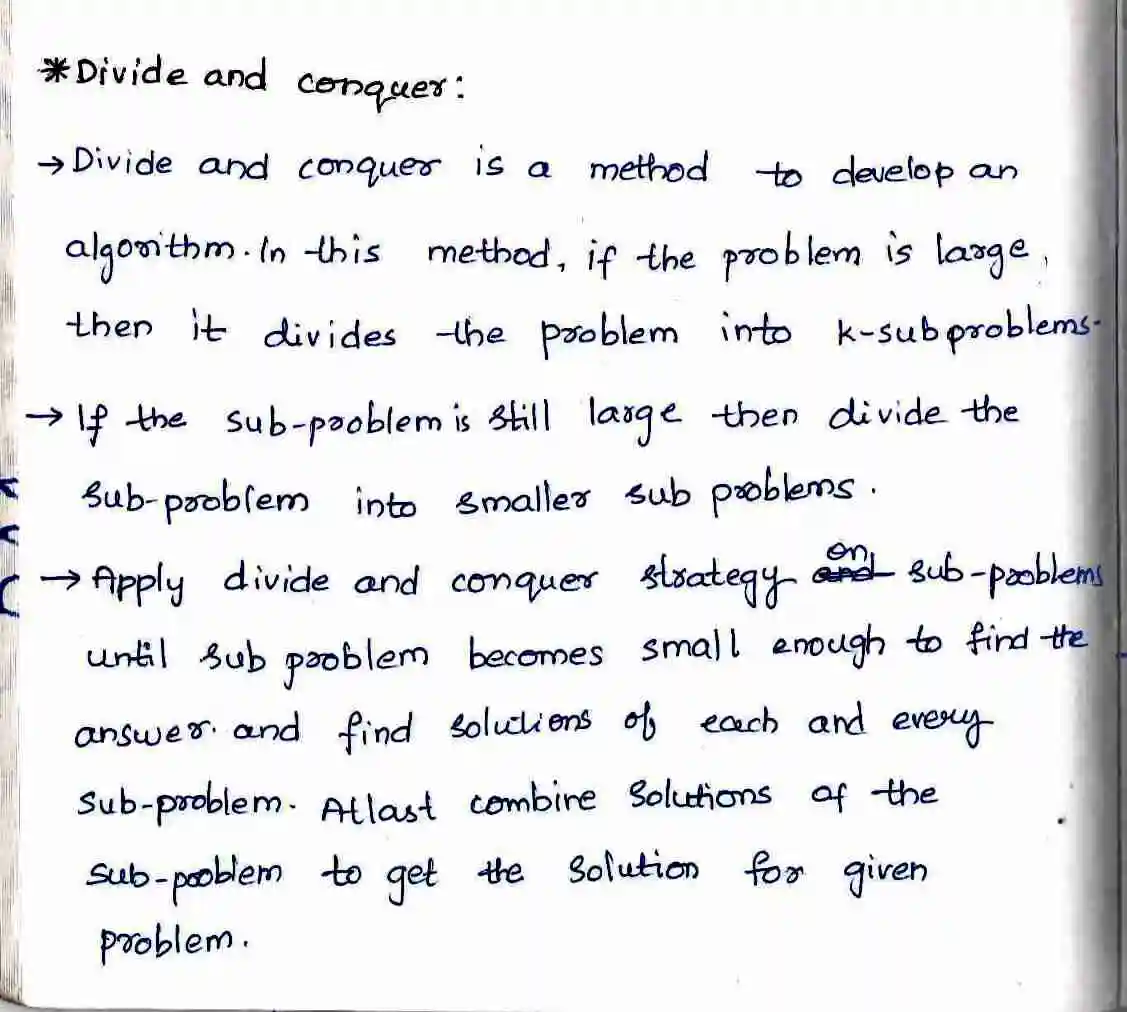 *Divide and conquer:
→ Divide and conquer is a method to develop an
algorithm. In this method, if the problem is large,
then it divides the problem into k-subproblems.
→ If the sub-problem is still large then divide the
sub-problem into smaller sub problems.
→ Apply divide and conquer strategy on sub-problems
until sub problem becomes small enough to find the
answer. and find solutions of each and every
sub-problem. Atlast combine solutions of the
sub-problem to get the solution for given
problem.